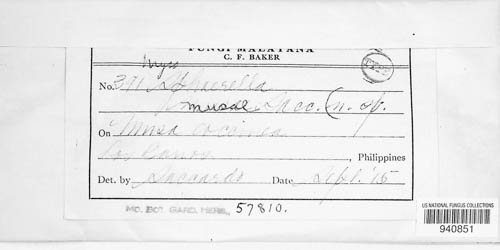 FUNGI MALAYANA
C. F. BAKER
TYPE
Myco
No. 391 sphaerella
musae Sacc. (n. sp.
On Musa coccinea
Los Banos, Philippines
Det. by Saccardo Date Sept. '15
MO. BOT. GARD. HERB., 57810.
US NATIONAL FUNGUS COLLECTIONS
940851